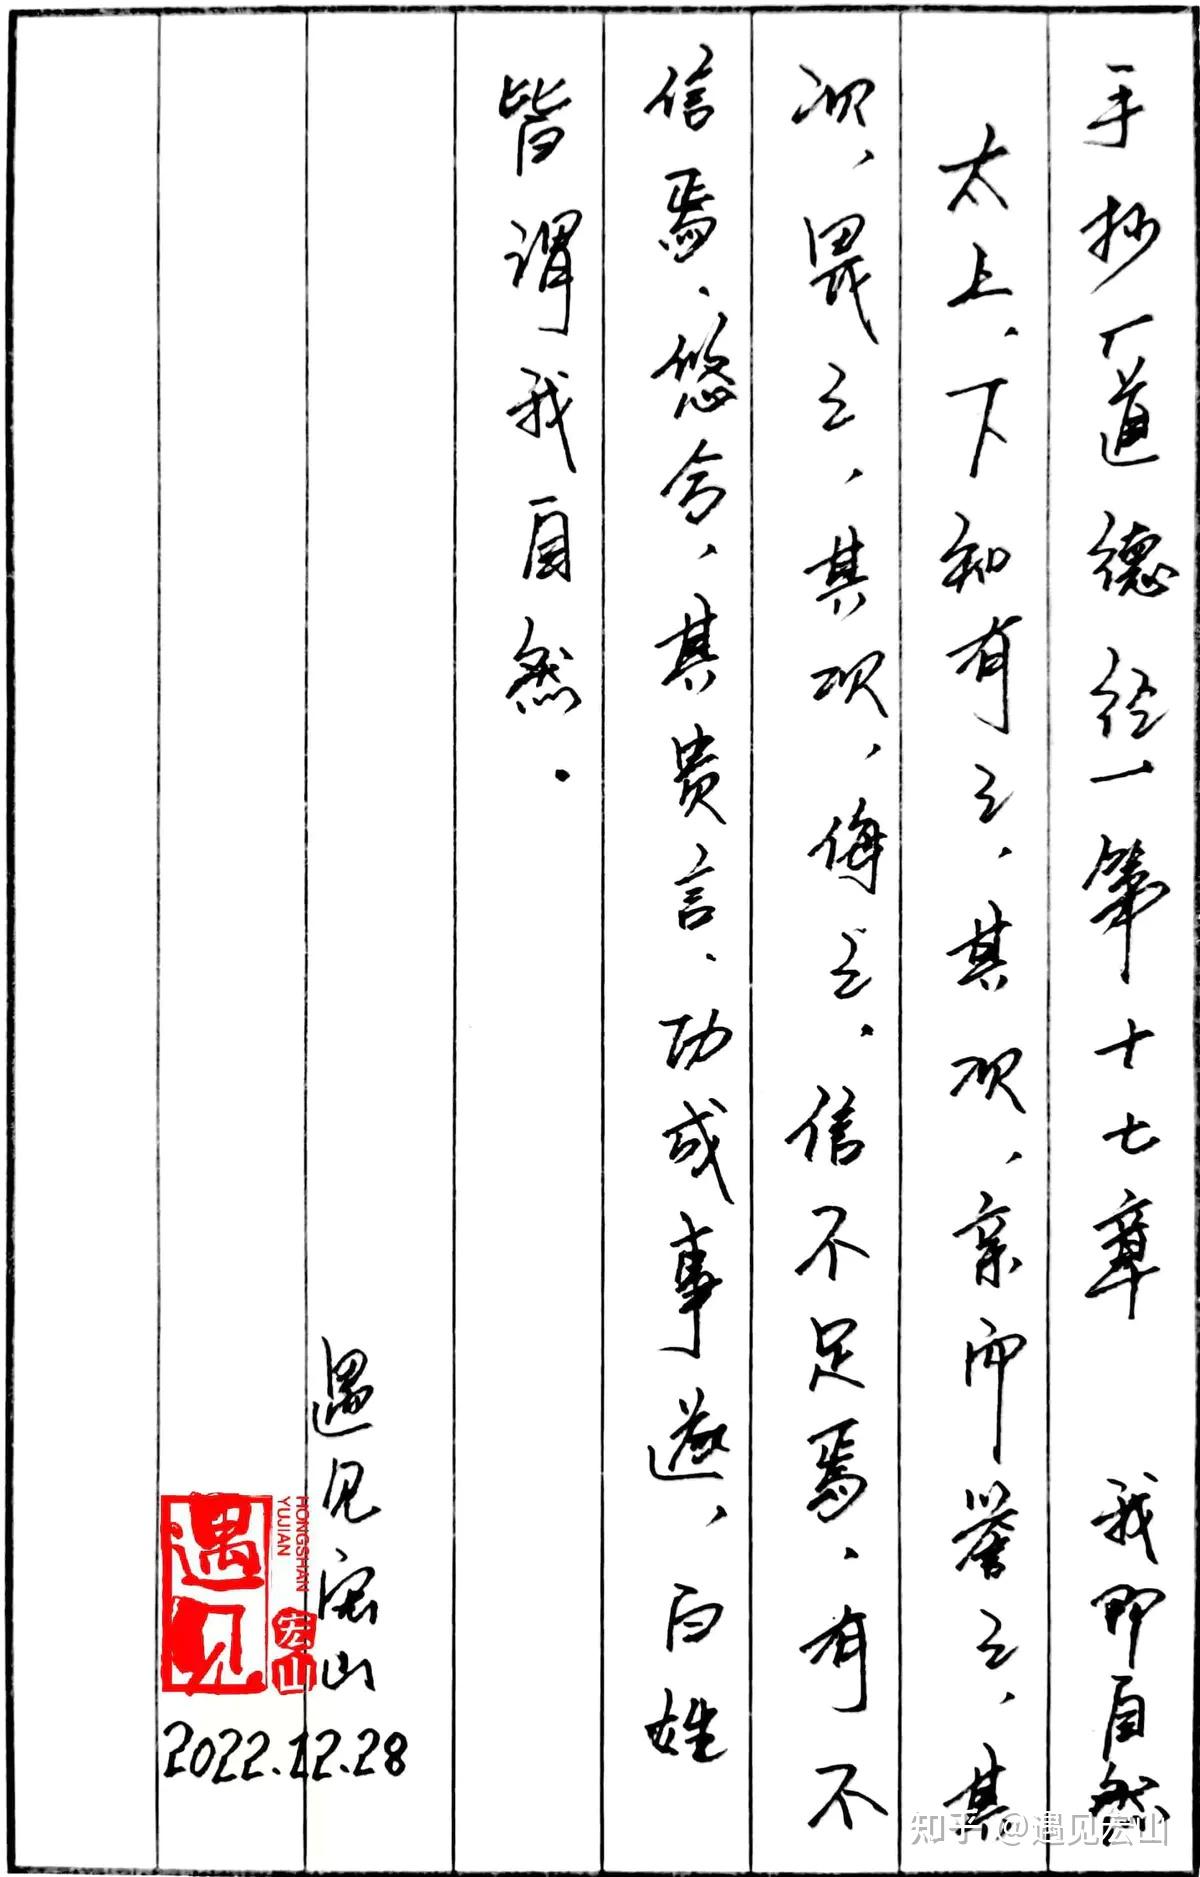 手抄《道德经》第十七章 我即自然
太上、下知有之、其次、亲而誉之、其
次、畏之、其次、侮之。信不足焉、有不
信焉、悠兮、其贵言、功成事遂、百姓
皆谓我自然。
遇见宏山
HONGSHAN
YUJIAN
宏山
遇见
2022.12.28
知乎 @遇见宏山